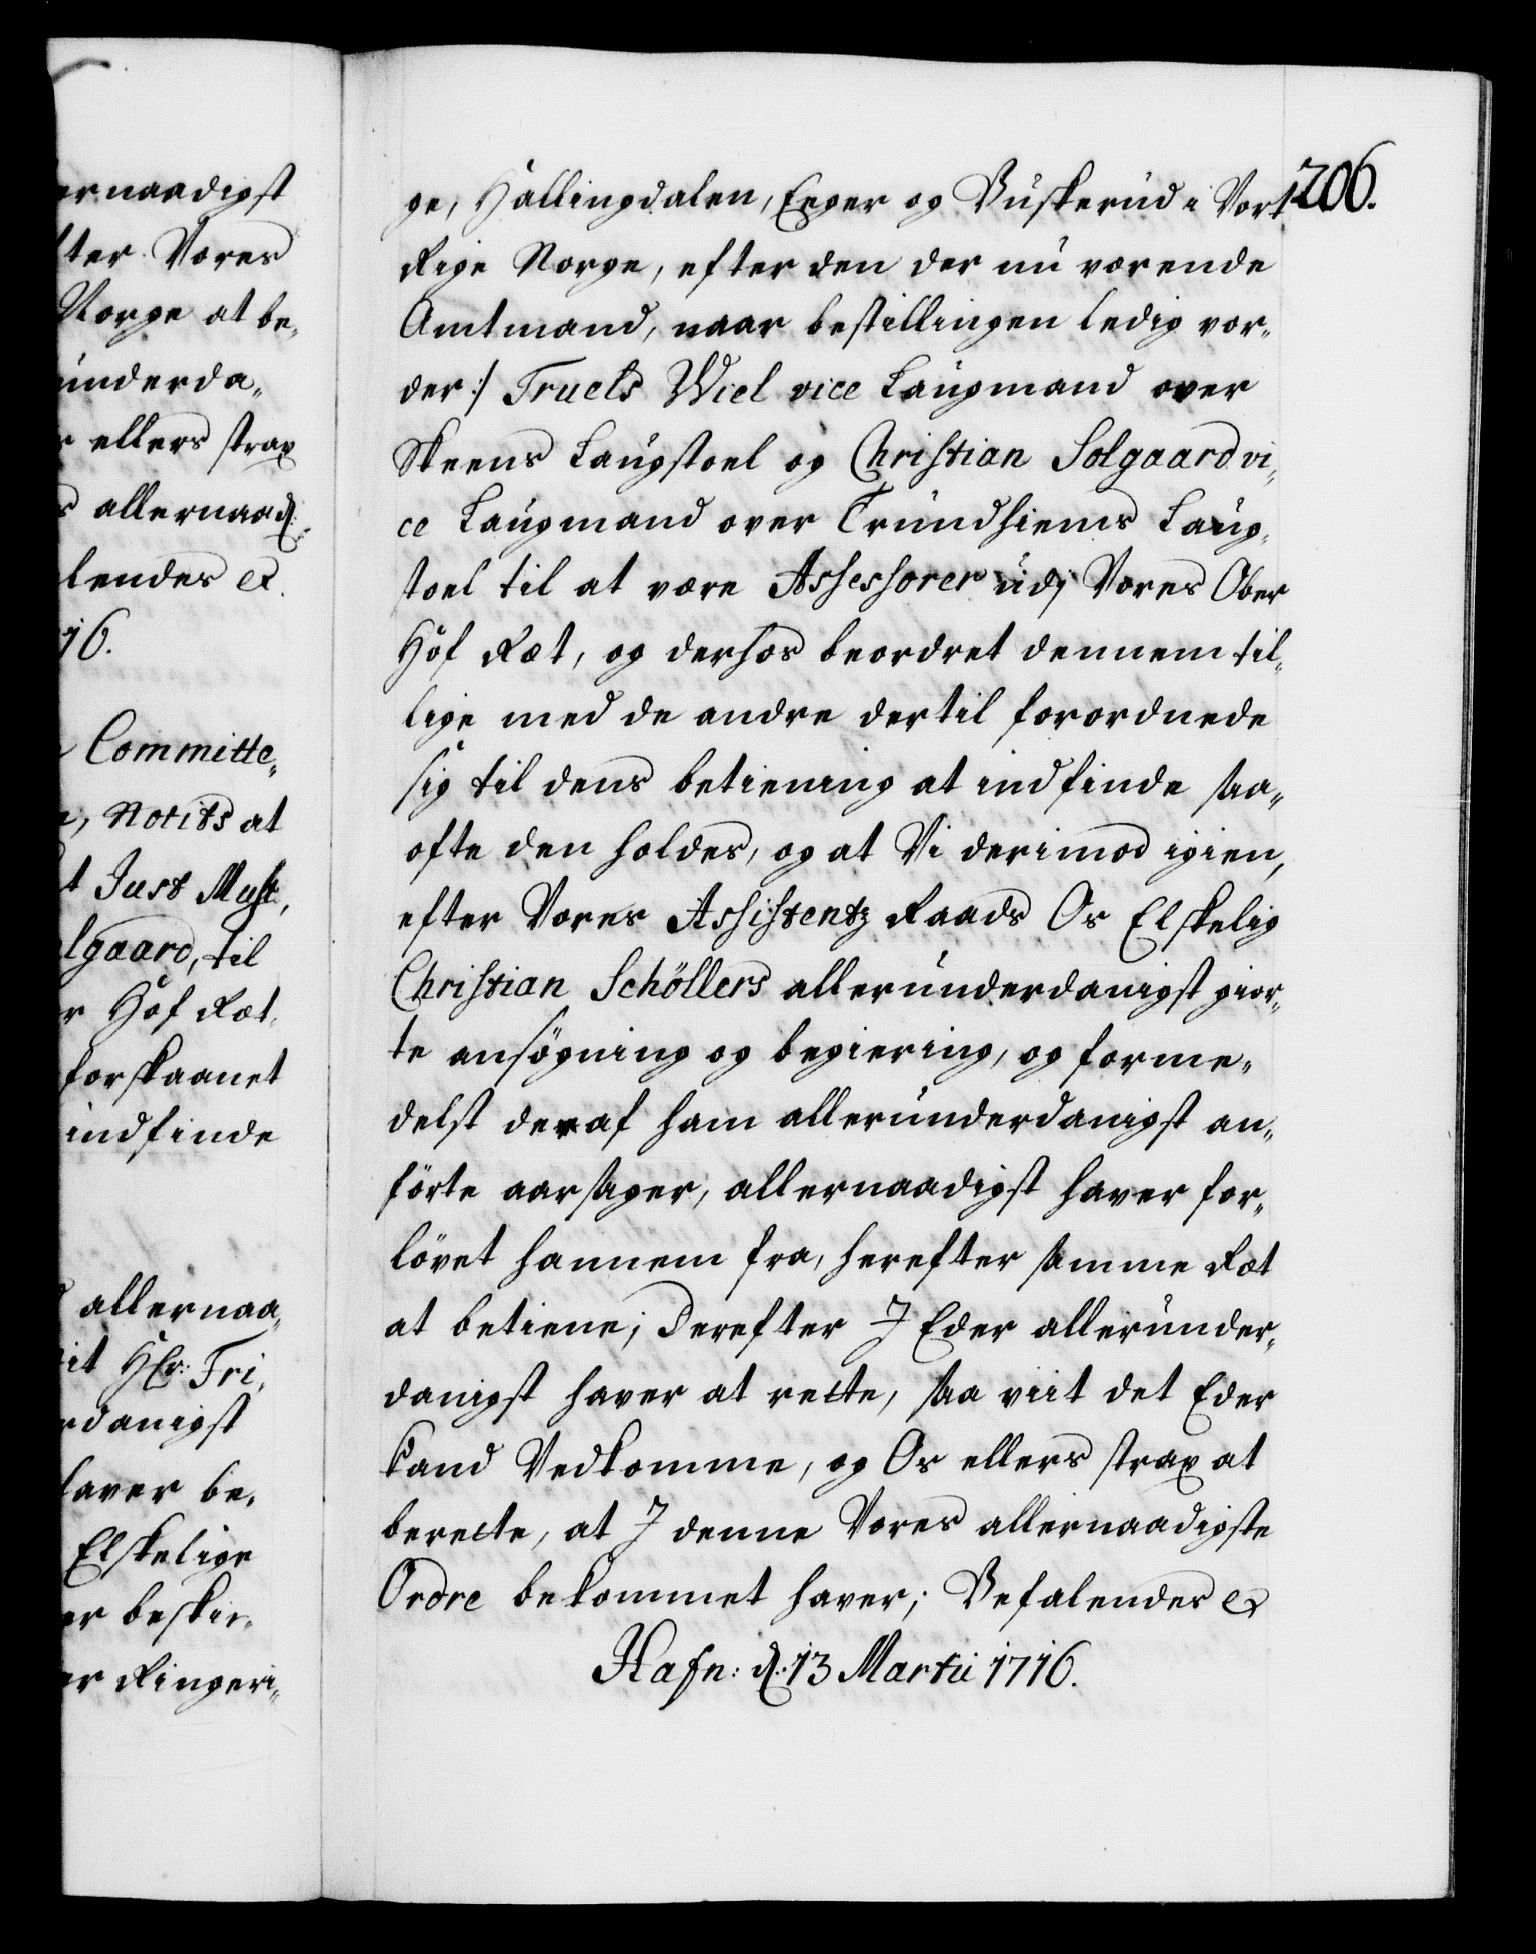 ernaadigst
fter Vores
Norge at be„
underda„
ellers strax
allernaad:
lendes &.
16.
Committe„
Notits at
t Just Must,
lgaard, til
r Hof Ræt,
forskaanet
indfinde
allernaa„
it Hr: Fri„
rdanigst
haver be„
Elskelige
er beskir„
er Ringeri„
206.
ge, Hallingdalen, Eger og Buskerud i Vort
Rige Norge, efter den der nu værende
Amtmand, naar bestillingen ledig vor„
der:/ Truels Wiel vice Laugmand over
Skeens Laugstoel og Christian Solgaard vi„
ce Laugmand over Trundhiems Laug„
stoel til at være Assessorer udj Vores Ober
Hof Ræt, og derhos beordret dennem til„
lige med de andre dertil forordnede
sig til dens betiening at indfinde saa„
ofte den holdes, og at Vi derimod igien,
efter Vores Assistentz Raads Os Elskelig
Christian Schöllers allerunderdanigst gior„
te ansøgning og begiering, og forme„
delst deraf ham allerunderdanigst an„
førte aarsager, allernaadigst haver for„
løvet hannem fra, herefter samme Ræt
at betiene; Derefter I Eder allerunder„
danigst haver at rette, saa viit det Eder
kand Vedkomme, og Os ellers strax at
berette, at I denne Vores allernaadigste
Ordre bekommet haver; Befalendes &
Hafn: d: 13 Martii 1716.